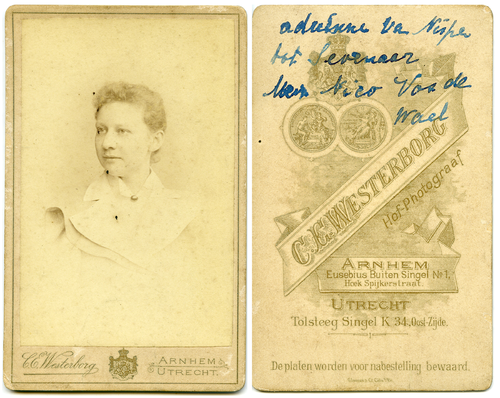 C.E. Westerborg
ARNHEM &
UTRECHT.
adrienne van Nispen
tot Sevenaar
Mevr Nico Van de
Wael
C.E. WESTERBORG
Hof-Photograaf
ARNHEM
Eusebius Buiten Singel No 1,
Hoek Spijkerstraat.
UTRECHT
Tolsteeg Singel K. 34, Oost-Zijde.
De platen worden voor nabestelling bewaard.